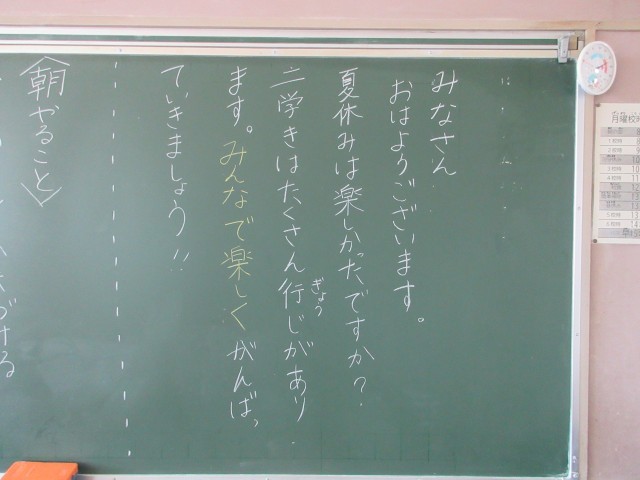 みなさん
おはようございます。
夏休みは楽しかったですか?
二学きはたくさん行じがあり
ぎょう
ます。みんなで楽しくがんばっ
ていきましょう!!
〈朝やること〉
月曜校時